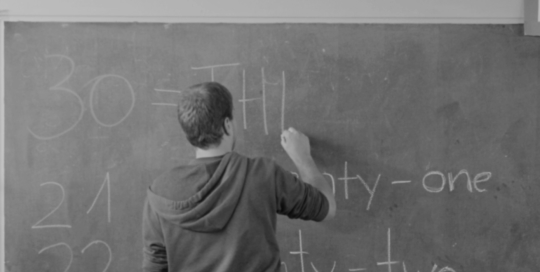 30 = THI
21 nty - one
22 ty - two